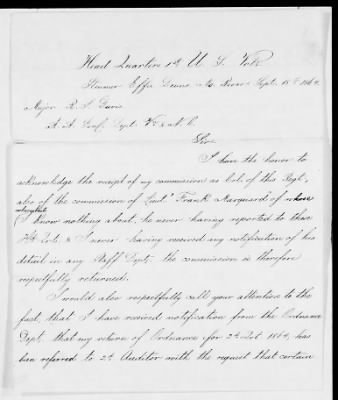 Head Quarters 1st U. S. Vols
Steamer Effie Deans Mo. River Sept. 18th 1864.
Major R. S. Davis
A. A. Genl. Dept. Va & N. C.
Sir
I have the honor to
acknowledge the receipt of my commission as Col. of this Regt.
also of the commission of Lieut. Frank of whose
whereabouts
I know nothing about, he never having reported to these
Hd. Qrts. & I never having received any notification of his
detail in any Staff Dept. the commission is therefore
respectfully returned.
I would also respectfully call your attention to the
fact, that I have received notification from the Ordnance
Dept. that my return of Ordnance for 2nd Qrt 1864, has
been referred to 2nd Auditor with the request that certain